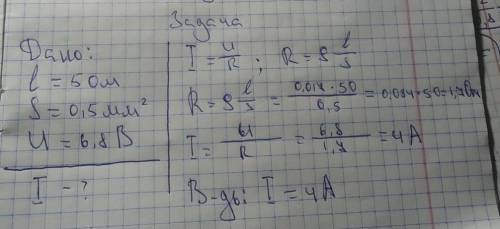 Задача
Дано:
l = 50м
S = 0,5 мм²
U = 6,8 В
I - ?
I = U/R ; R = ρ l/S
R = ρ l/S = 0,017 · 50 / 0,5 = 0,034 · 50 = 1,7 Ом
I = U/R = 6,8/1,7 = 4 А
В-дь: I = 4 А